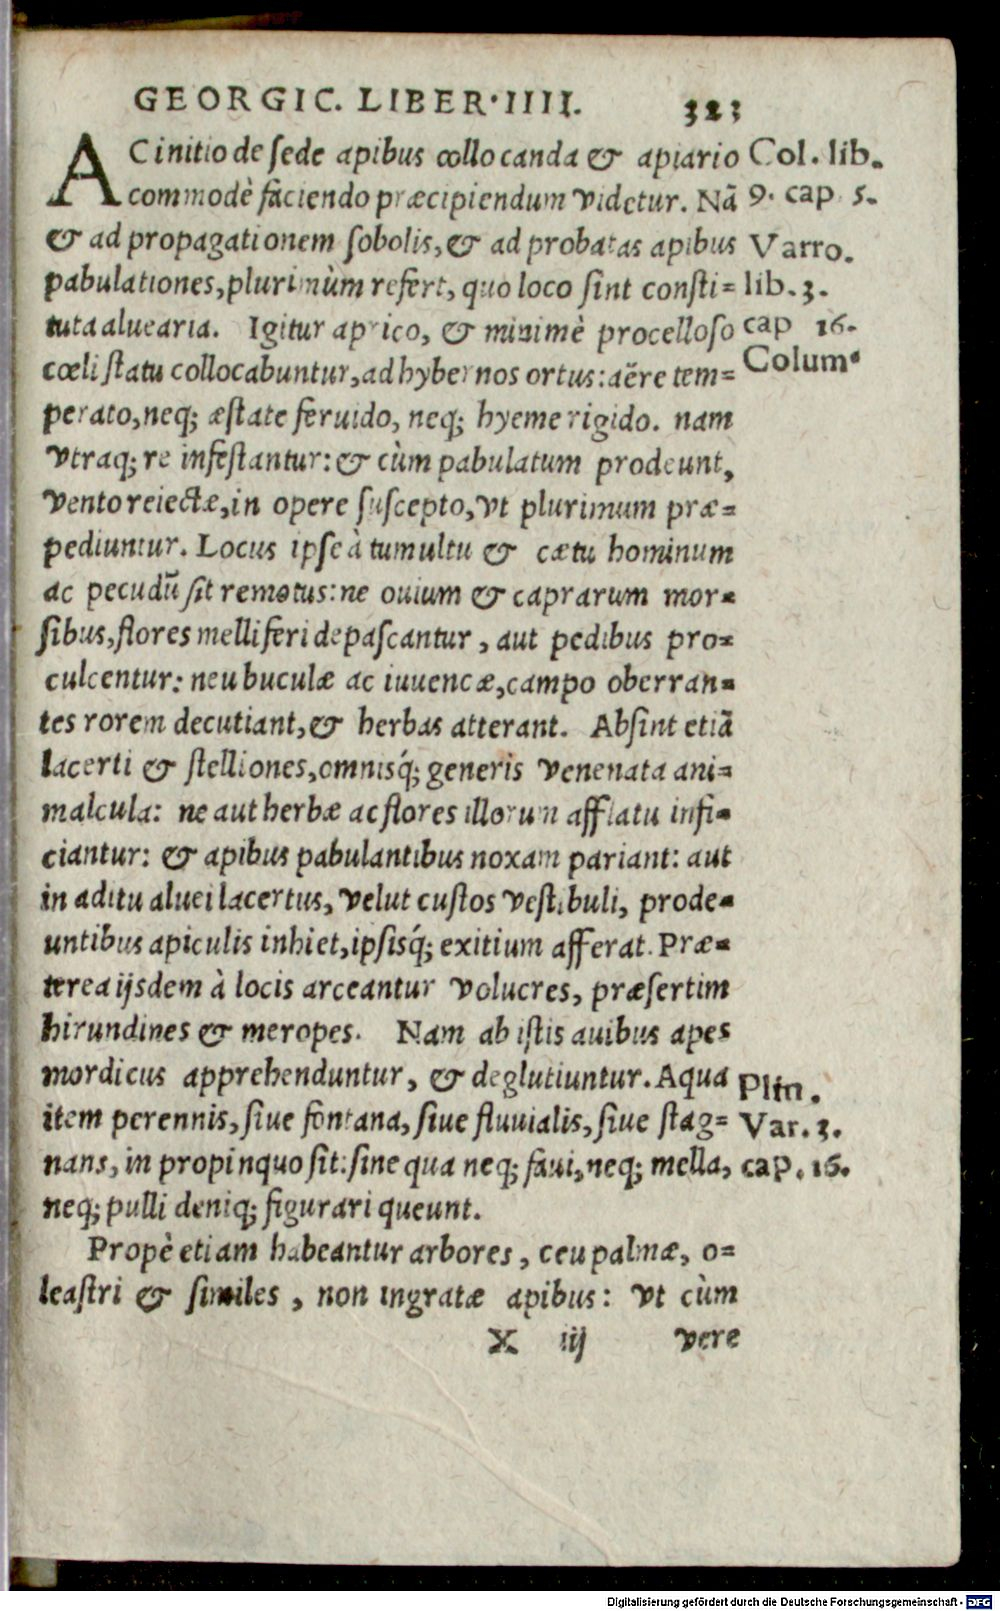 GEORGIC. LIBER·IIII. 323
AC initio de ſede apibus collocanda & apiario Col. lib.
commodè faciendo præcipiendum videtur. Nã 9. cap 5.
& ad propagationem ſobolis, & ad probatas apibus Varro.
pabulationes, plurimùm refert, quo loco ſint conſti= lib. 3.
tuta aluearia. Igitur aprico, & minimè procelloſo cap 16.
cœli ſtatu collocabuntur, ad hybernos ortus: aëre tem= Colum.
perato, neq; æſtate feruido, neq; hyeme rigido. nam
vtraq; re infeſtantur: & cùm pabulatum prodeunt,
vento reiectæ, in opere ſuſcepto, vt plurimum præ=
pediuntur. Locus ipſe à tumultu & cætu hominum
ac pecudũ ſit remotus: ne ouium & caprarum mor=
ſibus, flores melliferi depaſcantur, aut pedibus pro=
culcentur: neu buculæ ac iuuencæ, campo oberran=
tes rorem decutiant, & herbas atterant. Abſint etiã
lacerti & ſtelliones, omnisq́; generis venenata ani=
malcula: ne aut herbæ ac flores illorum afflatu infi=
ciantur: & apibus pabulantibus noxam pariant: aut
in aditu aluei lacertus, velut cuſtos veſtibuli, prode=
untibus apiculis inhiet, ipſisq́; exitium afferat. Præ=
terea ijsdem à locis arceantur volucres, præſertim
hirundines & meropes. Nam ab iſtis auibus apes
mordicus apprehenduntur, & deglutiuntur. Aqua Plin.
item perennis, ſiue fontana, ſiue fluuialis, ſiue ſtag= Var. 3.
nans, in propinquo ſit: ſine qua neq; faui, neq; mella, cap. 16.
neq; pulli deniq; figurari queunt.
Propè etiam habeantur arbores, ceu palmæ, o=
leaſtri & ſimiles, non ingratæ apibus: vt cùm
X iij vere
Digitalisierung gefördert durch die Deutsche Forschungsgemeinschaft - DFG